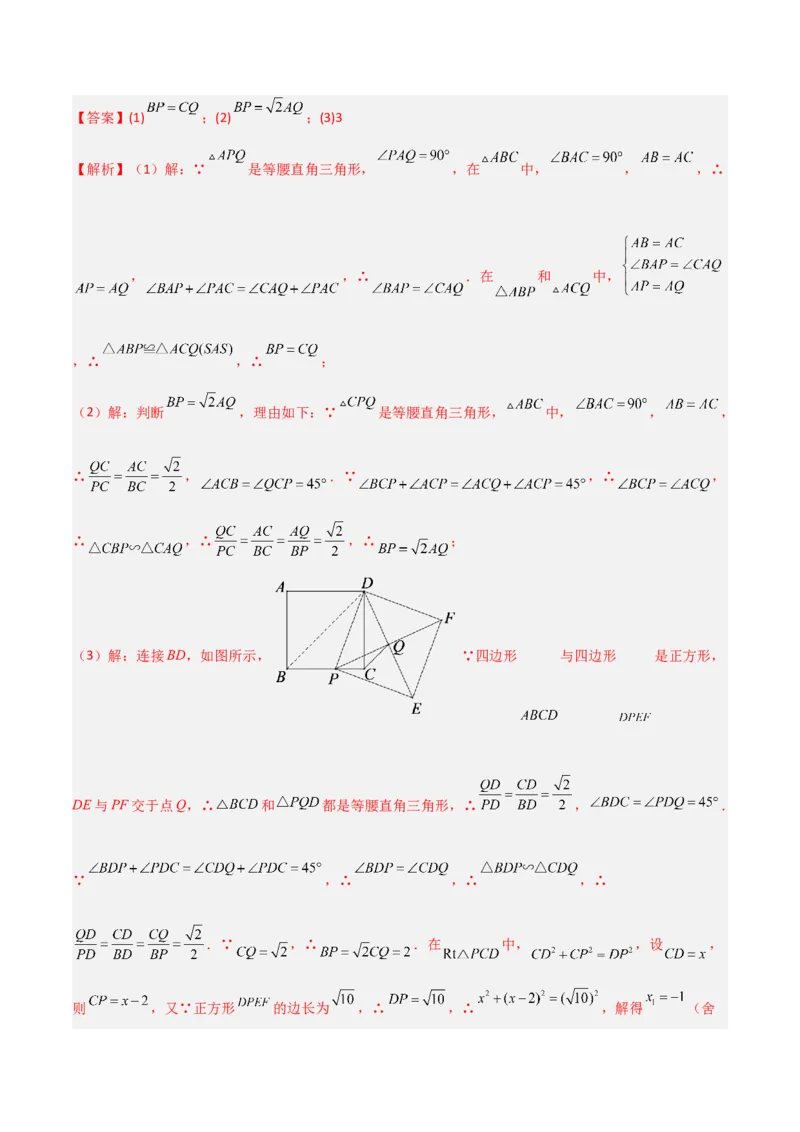 【答案】(1) BP=CQ ；(2) BP=√2AQ ；(3)3
【解析】（1）解：∵ △APQ 是等腰直角三角形， ∠PAQ=90° ，在 △ABC 中， ∠BAC=90° ， AB=AC ，∴
AP=AQ ， ∠BAP+∠PAC=∠CAQ+∠PAC ，∴ ∠BAP=∠CAQ ．在 △ABP 和 △ACQ 中， { AB=AC ∠BAP=∠CAQ AP=AQ
，∴ △ABP≌△ACQ(SAS) ，∴ BP=CQ ；
（2）解：判断 BP=√2AQ ，理由如下：∵ △CPQ 是等腰直角三角形， △ABC 中， ∠BAC=90° ， AB=AC ，
∴ QC/PC=AC/BC=√2/2 ， ∠ACB=∠QCP=45° ．∵ ∠BCP+∠ACP=∠ACQ+∠ACP=45° ，∴ ∠BCP=∠ACQ ，
∴ △CBP∽△CAQ ，∴ QC/PC=AC/BC=AQ/BP=√2/2 ，∴ BP=√2AQ ；
A D F Q B P C E
（3）解：连接BD，如图所示， ∵四边形 ABCD 与四边形 DPEF 是正方形，
DE与PF交于点Q，∴ △BCD 和 △PQD 都是等腰直角三角形，∴ QD/PD=CD/BD=√2/2 ， ∠BDC=∠PDQ=45° ．
∵ ∠BDP+∠PDC=∠CDQ+∠PDC=45° ，∴ ∠BDP=∠CDQ ，∴ △BDP∽△CDQ ，∴
QD/PD=CD/BD=CQ/BP=√2/2 ．∵ CQ=√2 ，∴ BP=√2CQ=2 ．在 Rt△PCD 中， CD²+CP²=DP² ，设 CD=x ，
则 CP=x-2 ，又∵正方形 DPEF 的边长为 √10 ，∴ DP=√10 ，∴ x²+(x-2)²=(√10)² ，解得 x₁=-1 （舍